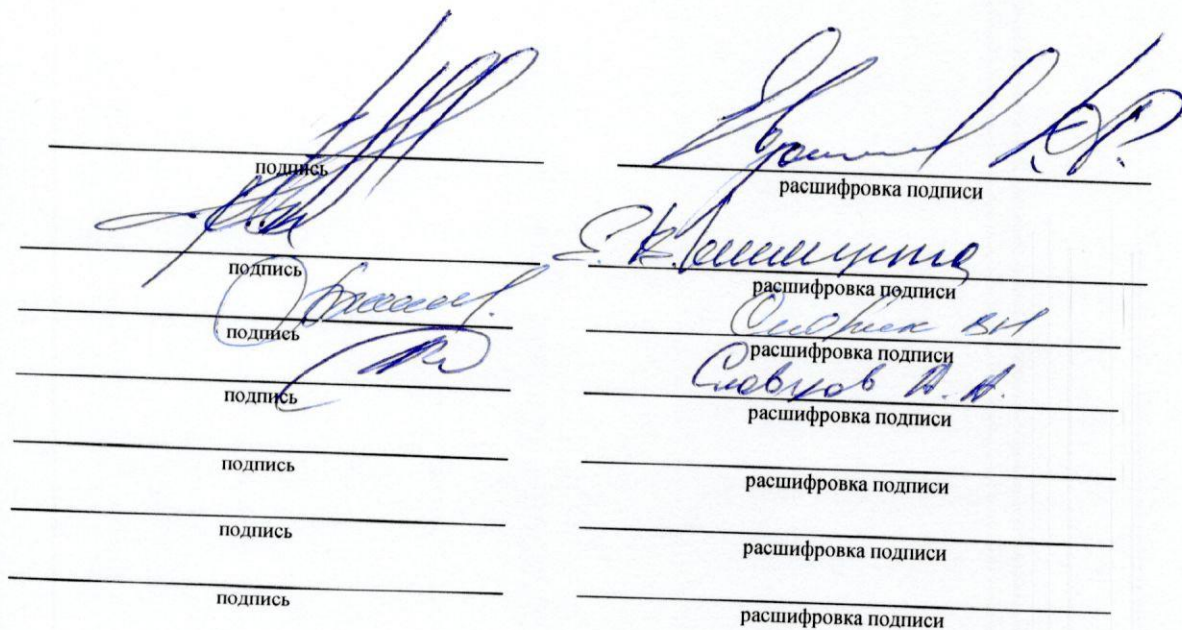 подпись расшифровка подписи
Е.В.
подпись расшифровка подписи
подпись расшифровка подписи
Словцов А.А.
подпись расшифровка подписи
подпись расшифровка подписи
подпись расшифровка подписи
подпись расшифровка подписи